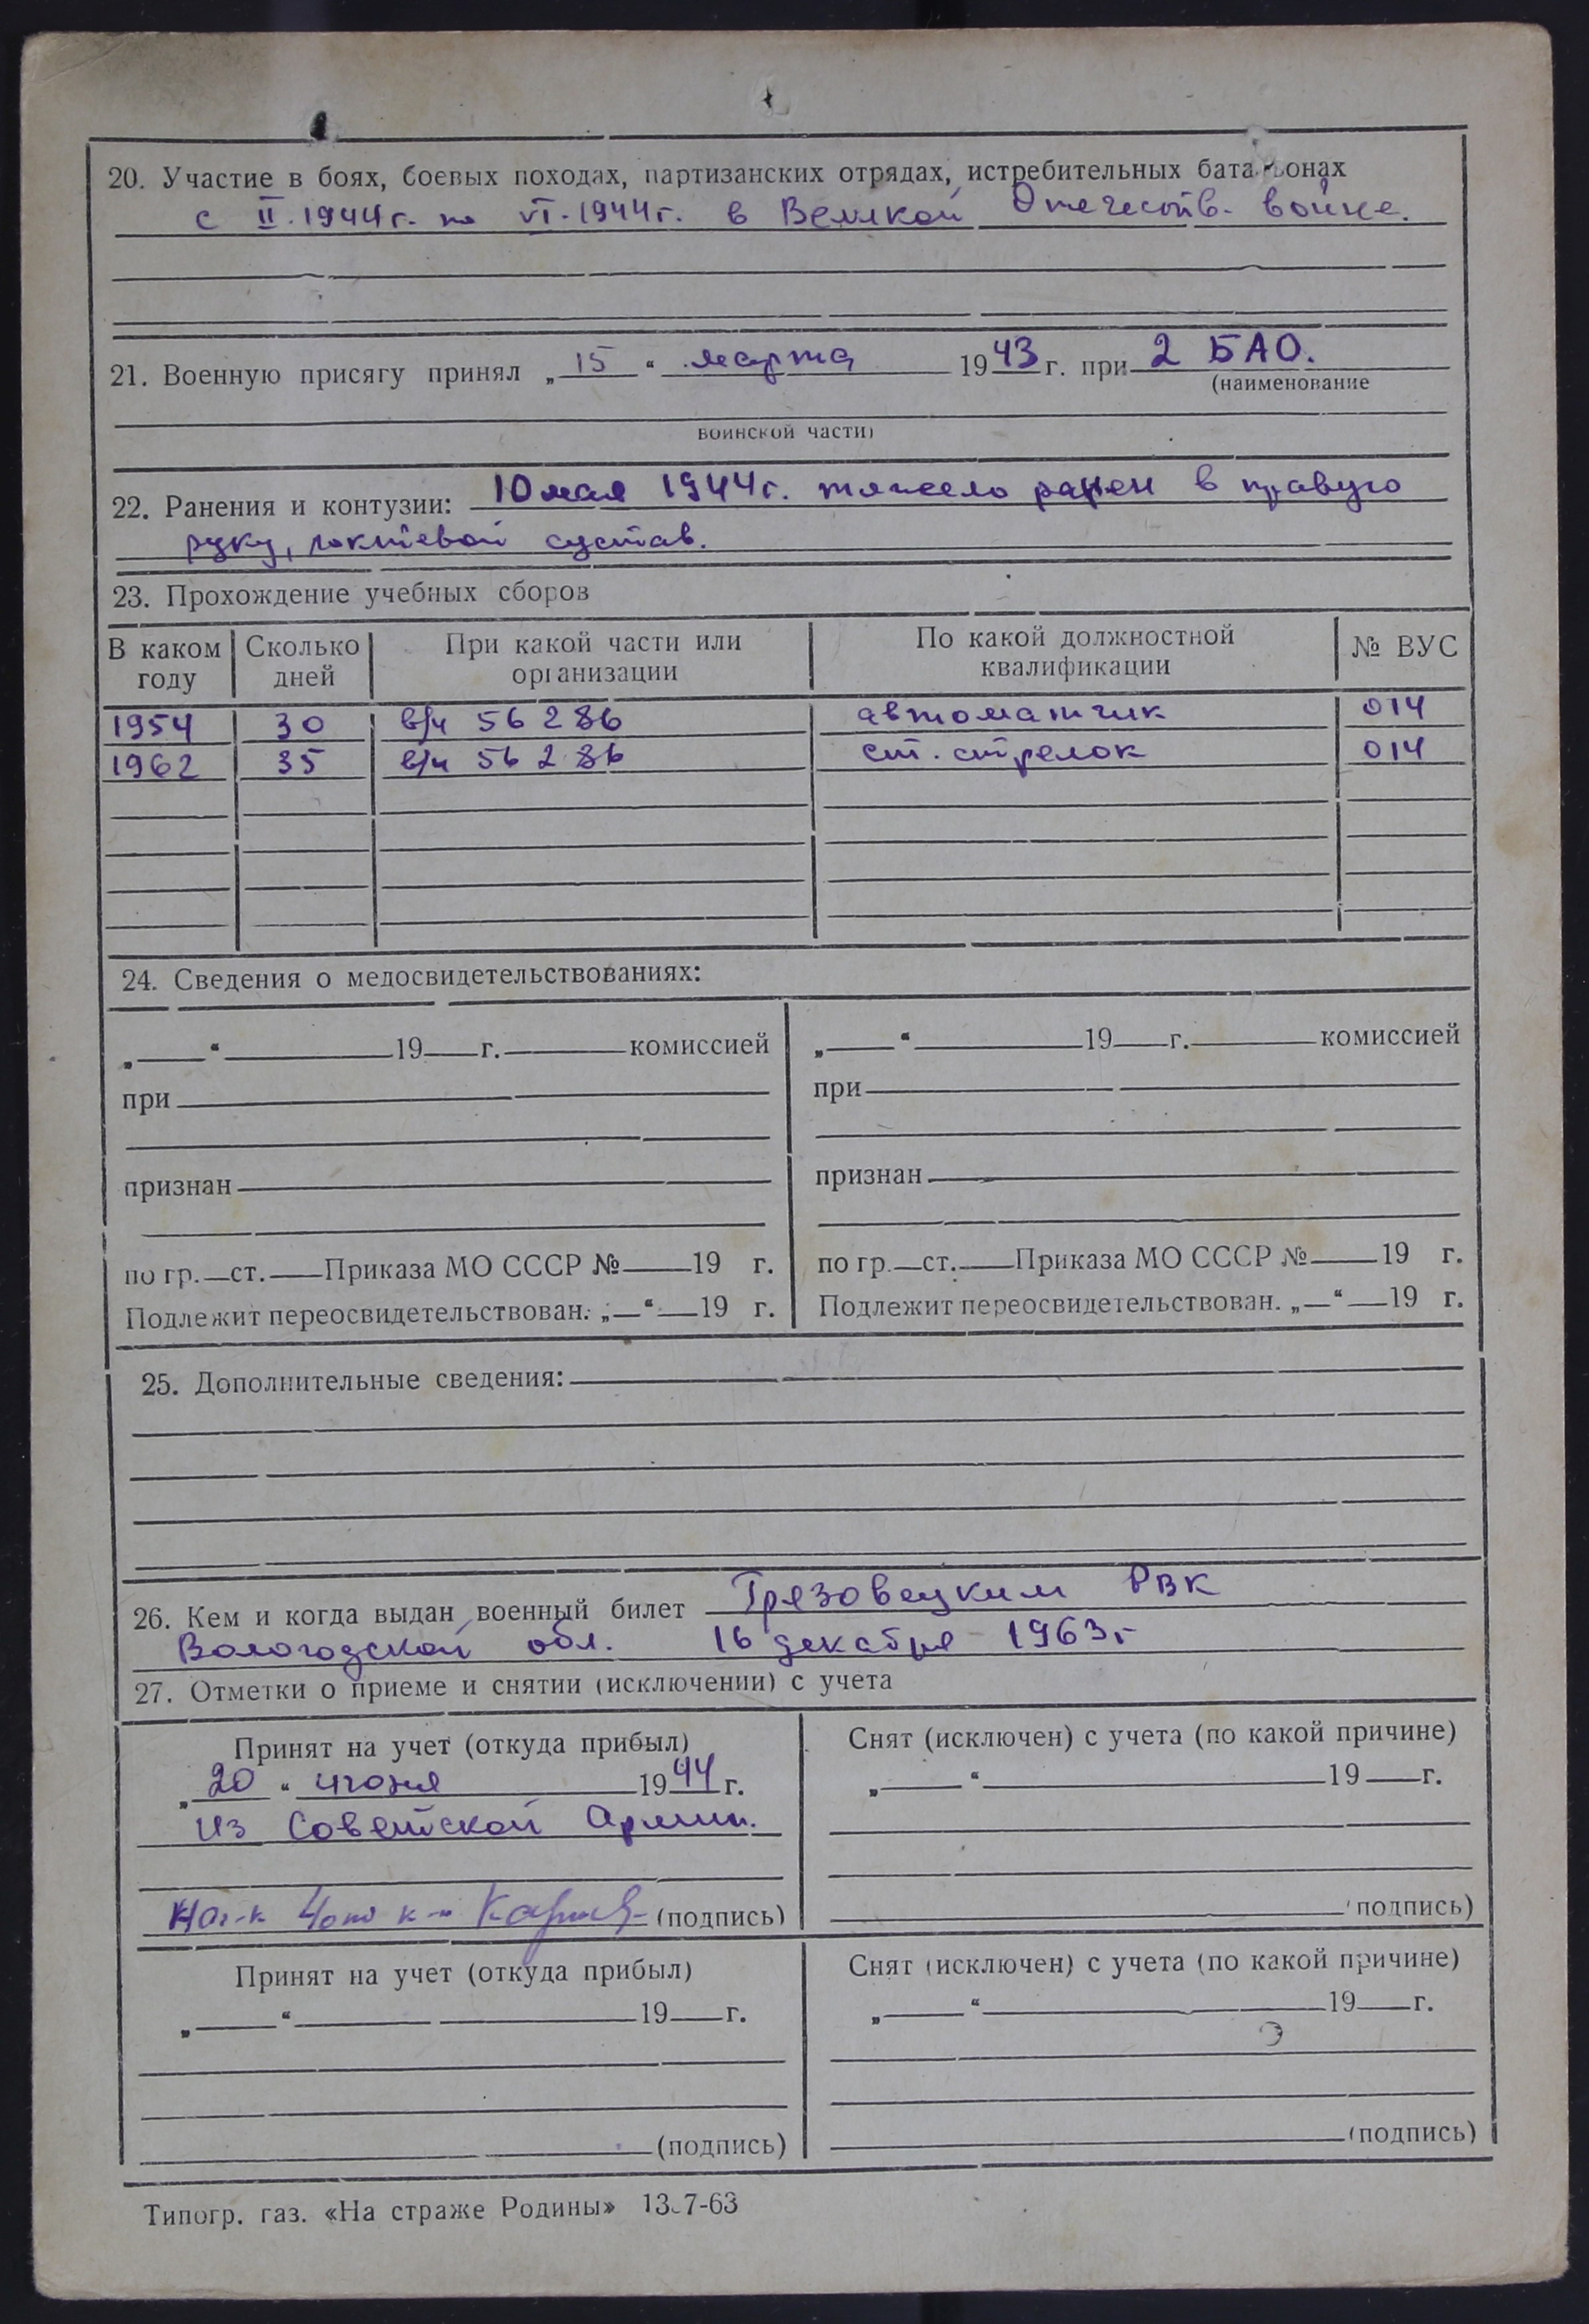 20. Участие в боях, боевых походах, партизанских отрядах, истребительных батальонах
с II.1944г. по VI.1944г. в Великой Отечеств. войне.
21. Военную присягу принял „15“ марта 1943 г. при 2 БАО.
(наименование
воинской части)
22. Ранения и контузии: 10 мая 1944г. тяжело ранен в правую
руку, локтевой сустав.
23. Прохождение учебных сборов
В каком году Сколько дней При какой части или организации По какой должностной квалификации № ВУС
1954 30 в/ч 56286 автоматчик 014
1962 35 в/ч 56286 ст. стрелок 014
24. Сведения о медосвидетельствованиях:
„ “ 19 г. комиссией „ “ 19 г. комиссией
при при
признан признан
по гр. ст. Приказа МО СССР № 19 г. по гр. ст. Приказа МО СССР № 19 г.
Подлежит переосвидетельствован. „ “ 19 г. Подлежит переосвидетельствован. „ “ 19 г.
25. Дополнительные сведения:
26. Кем и когда выдан военный билет Грязовецким РВК
Вологодской обл. 16 декабря 1963г
27. Отметки о приеме и снятии (исключении) с учета
Принят на учет (откуда прибыл) Снят (исключен) с учета (по какой причине)
„20“ июня 1944 г. „ “ 19 г.
из Советской Армии.
(подпись) (подпись)
Принят на учет (откуда прибыл) Снят (исключен) с учета (по какой причине)
„ “ 19 г. „ “ 19 г.
(подпись) (подпись)
Типогр. газ. «На страже Родины»